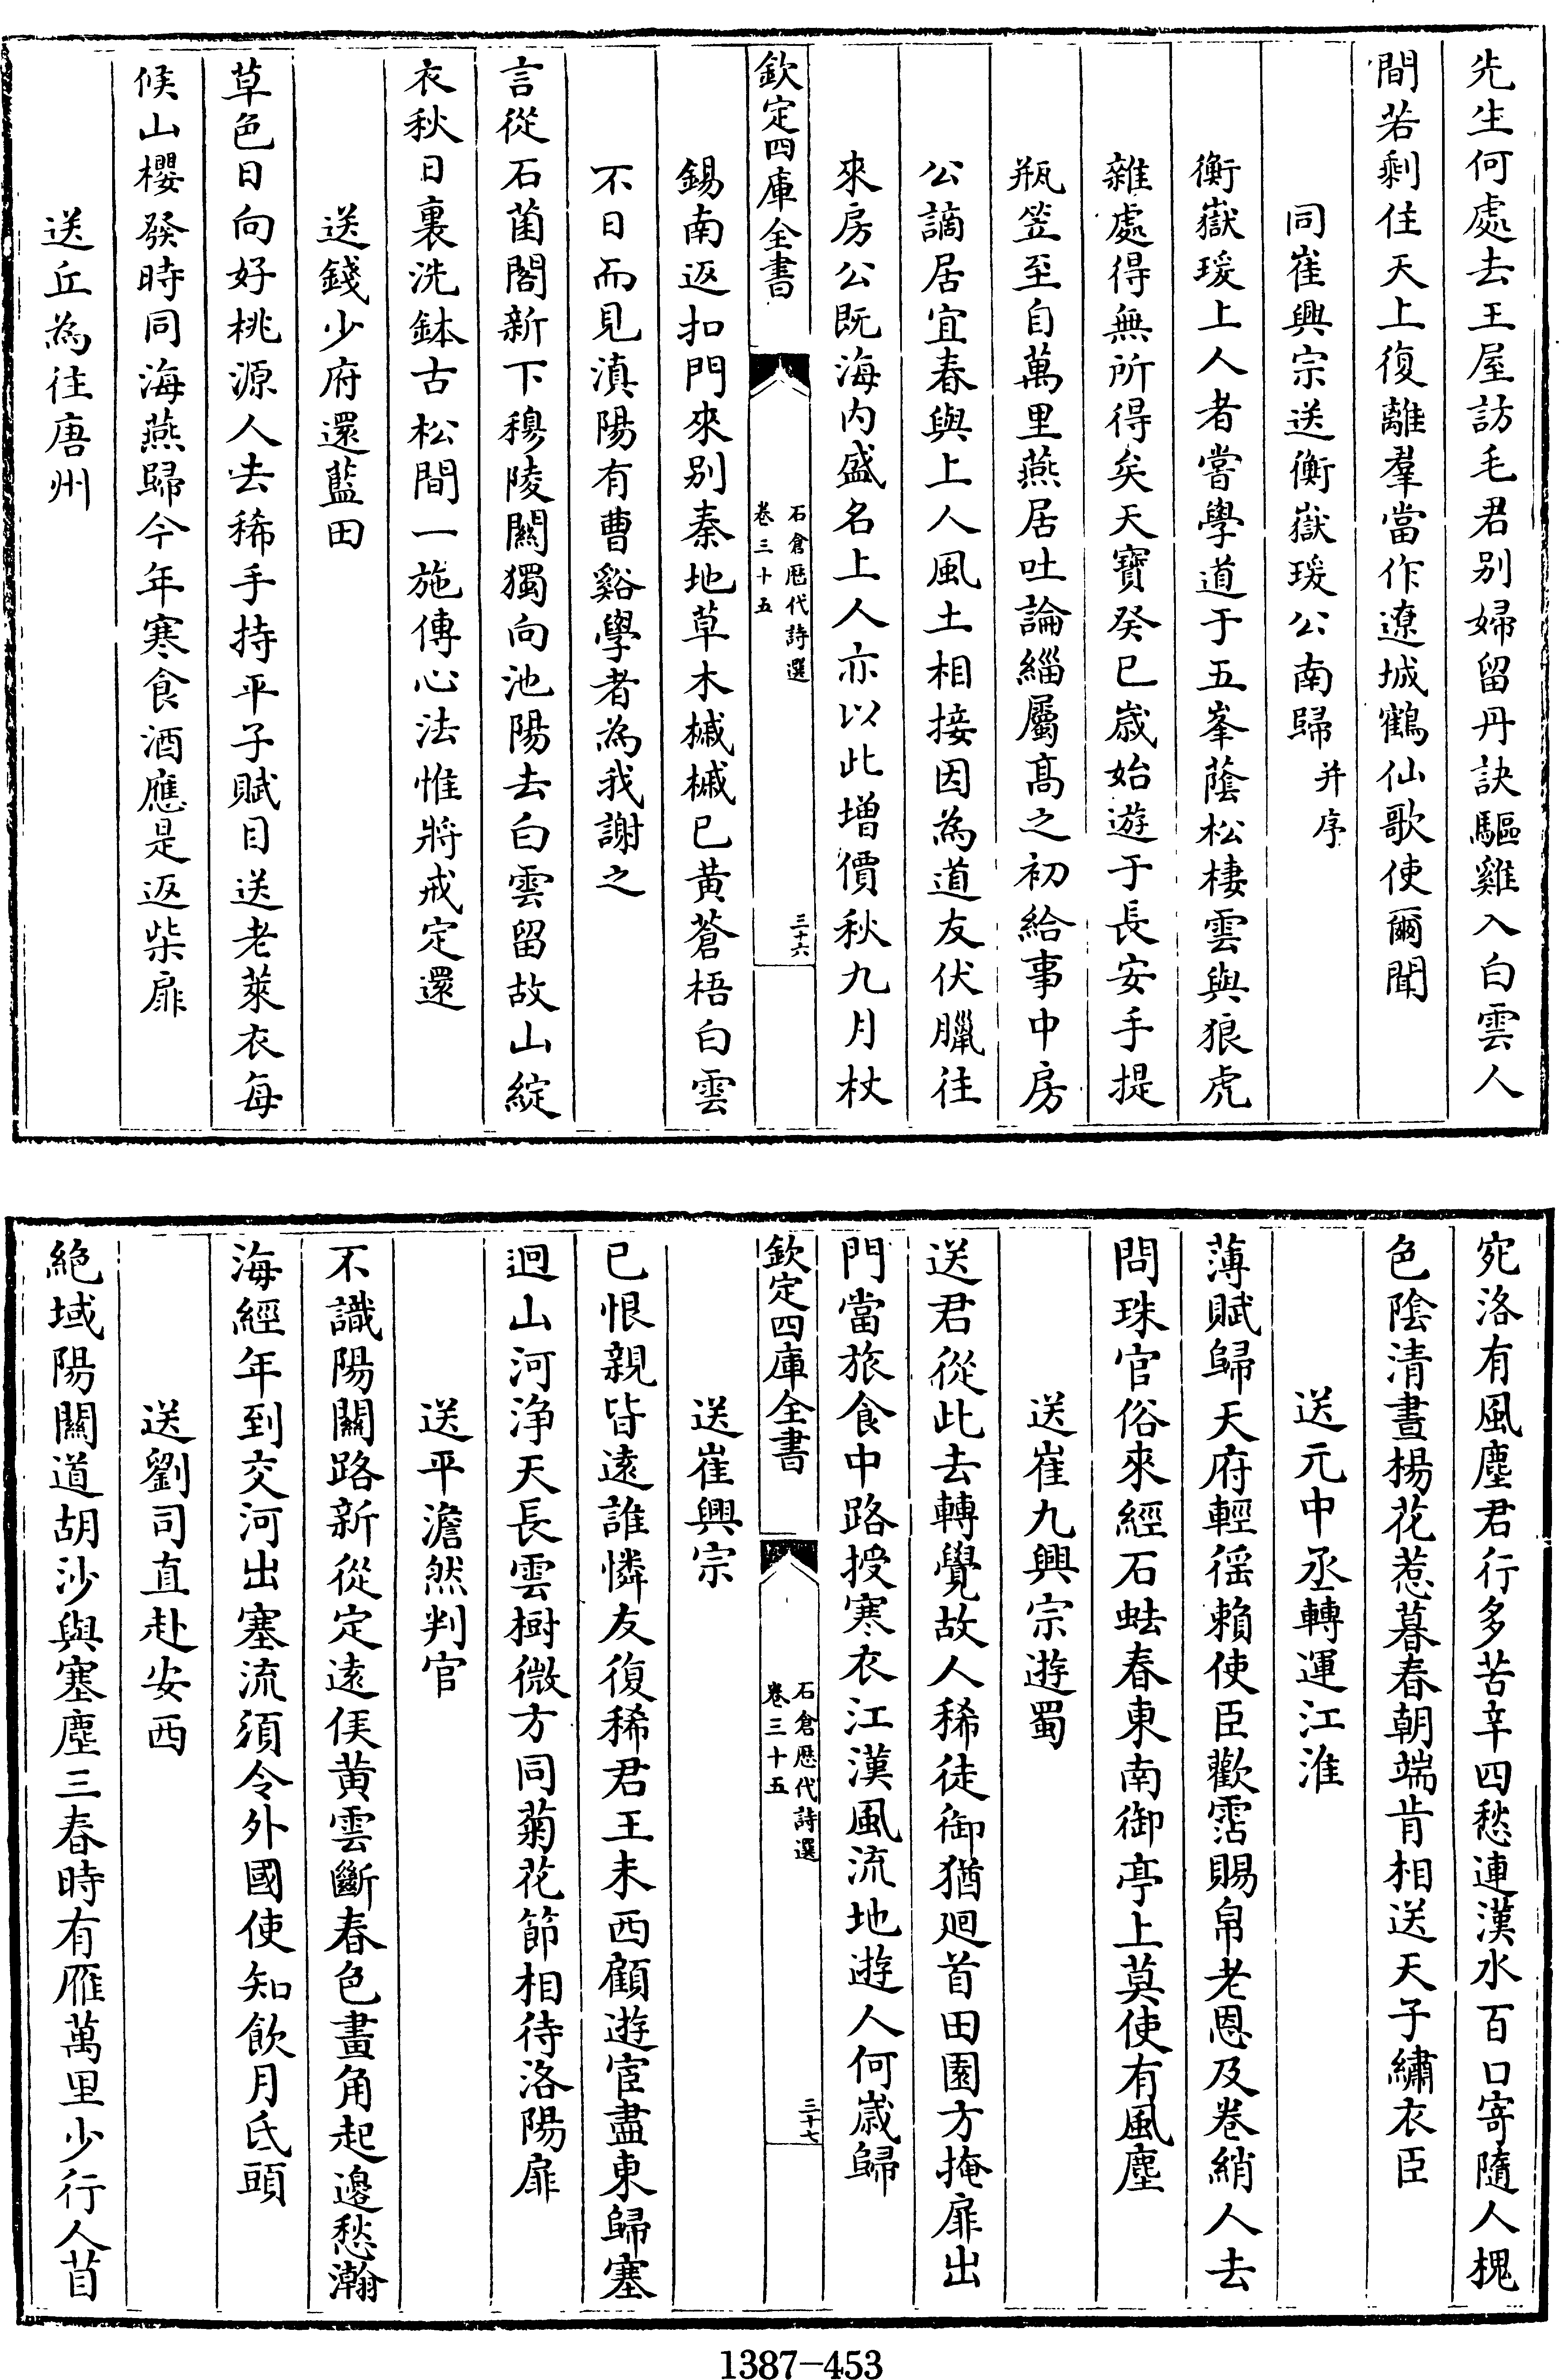 先生何處去王屋訪毛君别婦留丹訣驅雞入白雲人
間若剩住天上復離羣當作遼城鶴仙歌使爾聞
同崔興宗送衡嶽瑗公南歸并序
衡嶽瑗上人者嘗學道于五峯蔭松棲雲與狼虎
雜處得無所得矣天寶癸巳嵗始遊于長安手提
瓶笠至自萬里燕居吐論緇屬髙之初給事中房
公謫居宜春與上人風土相接因為道友伏臘往
來房公既海内盛名上人亦以此增價秋九月杖
欽定四庫全書
石倉歷代詩選
卷三十五
三十六
錫南返扣門來别秦地草木槭槭已黄蒼梧白雲
不日而見滇陽有曹谿學者為我謝之
言從石菌閣新下穆陵關獨向池陽去白雲留故山綻
衣秋日裏洗鉢古松間一施傳心法惟將戒定還
送錢少府還藍田
草色日向好桃源人去稀手持平子賦目送老萊衣每
候山櫻發時同海燕歸今年寒食酒應是返柴扉
送丘為往唐州
宛洛有風塵君行多苦辛四愁連漢水百口寄隨人槐
色陰清晝楊花惹暮春朝端肯相送天子繡衣臣
送元中丞轉運江淮
薄賦歸天府輕徭賴使臣歡霑賜帛老恩及卷綃人去
問珠官俗來經石蛣春東南御亭上莫使有風塵
送崔九興宗遊蜀
送君從此去轉覺故人稀徒御猶廻首田園方掩扉出
門當旅食中路授寒衣江漢風流地遊人何嵗歸
欽定四庫全書
石倉歷代詩選
卷三十五
三十七
送崔興宗
已恨親皆遠誰憐友復稀君王未西顧遊宦盡東歸塞
迥山河浄天長雲樹微方同菊花節相待洛陽扉
送平澹然判官
不識陽關路新從定遠侯黄雲斷春色畫角起邊愁瀚
海經年到交河出塞流須令外國使知飲月氏頭
送劉司直赴安西
絶域陽關道胡沙與塞塵三春時有雁萬里少行人苜
1387-453